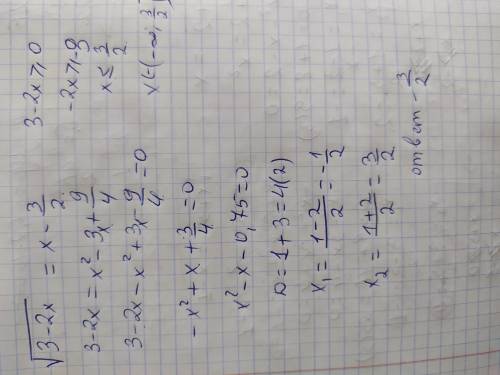 √(3-2x) = x - 3/2
3-2x = x² - 3x + 9/4
3-2x - x² + 3x - 9/4 = 0
-x² + x + 3/4 = 0
x² - x - 0,75 = 0
D = 1+3 = 4(2)
x₁ = (1-2)/2 = -1/2
x₂ = (1+2)/2 = 3/2
ответ - 3/2
3-2x ⩾ 0
-2x ⩾ -3
x ≤ 3/2
x ∈ (-∞; 3/2]